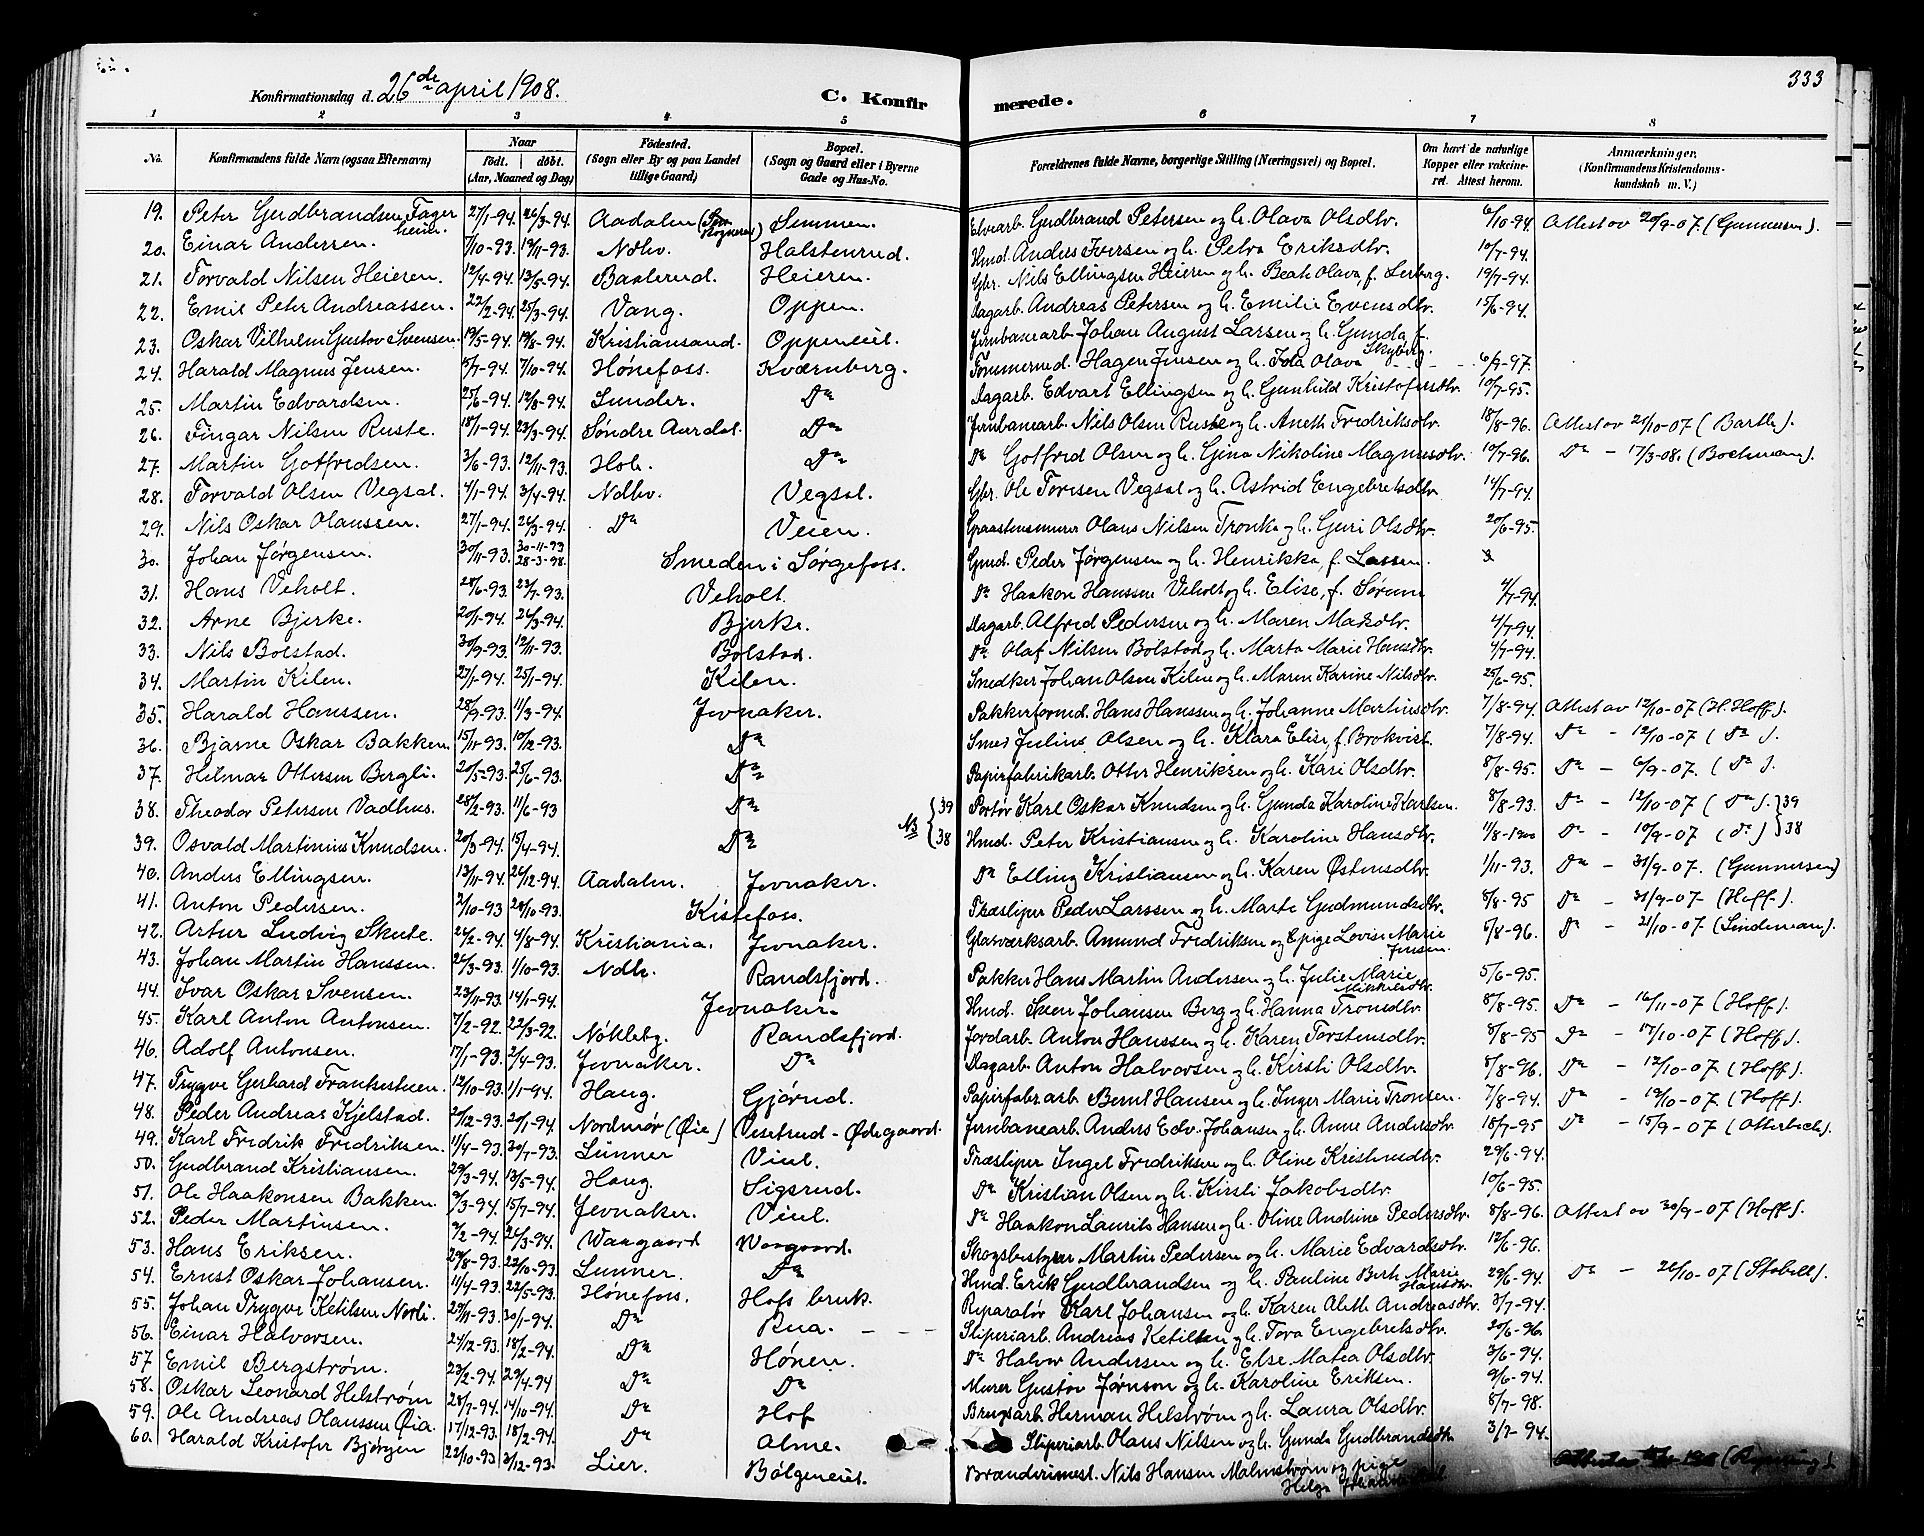 333
Konfirmationsdag d. 26de april 1908.
C. Konfirmerede.
1 2 3 4 5 6 7 8
No. Konfirmandens fulde Navn (ogsaa Efternavn) Naar født. døbt. (Aar, Maaned og Dag) Fødested. (Sogn eller By og paa Landet tillige Gaard) Bopæl. (Sogn og Gaard eller i Byerne Gade og Hus-No. Forældrenes fulde Navne, borgerlige Stilling (Næringsvei) og Bopæl. Om havt de naturlige Kopper eller vakcineret. Attest herom. Anmærkninger. (Konfirmandens Kristendomskundskab m. V.)
19. Peter Gudbrandsen Fagerheim. 27/1-94. 26/3-94. Aadalen Semmen. Elvearb. Gudbrand Petersen og h. Olava Olsdtr. 6/10-94 Attest av 20/9-07. (Gunnersen).
20. Einar Andersen. 7/10-93. 19/11-93. Ndhv. Halstenrud. Hmd. Anders Iversen og h. Petra Eriksdtr. 10/7-94.
21. Torvald Nilsen Heieren. 12/4-94. 13/5-94. Baalerud. Heieren. Gbr. Nils Ellingsen Heieren og h. Beate Olava, f. Lerberg. 19/7-94.
22. Emil Peter Andreassen. 22/2-94. 25/3-94. Vang. Oppen. Dagarb. Andreas Petersen og h. Emilie Evensdtr. 15/6-94.
23. Oskar Vilhelm Gustav Svensen. 19/5-94. 19/8-94. Kristiansand. Oppeneiet. Jernbanearb. Johan August Larsen og h. Gunda f. Skyberg.
24. Harald Magnus Jensen. 15/7-94. 7/10-94. Hønefoss. Kværnberg. Tømmermd. Hagen Jensen og h. Ida Olava 6/9-97.
25. Martin Edvardsen. 25/6-94. 12/8-94. Lunder. Do Dagarb. Edvart Ellingsen og h. Gunhild Kristofersdtr. 10/7-95.
26. Fingar Nilsen Ruste. 18/1-94. 23/3-94. Søndre Aurdal. Do Jernbanearb. Nils Olsen Ruste og h. Aneth Fredriksdtr. 18/8-96. Attest av 21/10-07 (Barth).
27. Martin Gotfredsen. 3/6-93. 12/11-93. Hole. Do Do Gotfred Olsen og h. Gina Nikoline Magnusdtr. 10/7-96. Do - 17/3-08. (Bockman).
28. Torvald Olsen Vegsal. 4/1-94. 3/4-94. Ndhv. Vegsal. Gbr. Ole Toresen Vegsal og h. Astrid Engebretsdtr. 14/7-94.
29. Nils Oskar Olaussen. 27/1-94. 26/3-94. Do Veien. Graastensmurer Olaus Nilsen Tronka og h. Guri Olsdtr. 20/6-95.
30. Johan Jørgensen. 30/11-93. 30-11-93 28-3-98. Smeden i Sørgefoss. Gmd. Peder Jørgensen og h. Henrikka, f. Larsen.
31. Hans Veholt. 28/6-93. 23/7-93. Veholt. Do Haakon Hanssen Veholt og h. Elise, f. Sørum 4/7-94.
32. Arne Bjerke. 20/1-94. 26/3-94. Bjerke. Dagarb. Alfred Pedersen og h. Maren Matsdtr. 4/7-94.
33. Nils Bolstad. 30/9-93. 12/11-93. Bolstad. Do Olaf Nilsen Bolstad og h. Marta Marie Hansdtr. 4/7-94.
34. Martin Kilen. 27/1-94. 25/1-94. Kilen. Snedker Johan Olsen Kilen og h. Maren Karine Nilsdtr. 25/6-95.
35. Harald Hanssen. 28/9-93. 11/3-94. Jevnaker. Pakkerformd. Hans Hanssen og h. Johanne Martinsdtr. 7/8-94. Attest av 12/10-07 (H. Hoff).
36. Bjarne Oskar Bakken. 15/11-93. 10/12-93. Do Smed Julius Olsen og h. Klara Elise, f. Brokvist. 7/8-94. Do - 12/10-07 (Do).
37. Hilmar Ottersen Bergli. 20/5-93. 25/6-93. Do Papirfabrikarb. Otter Henriksen og h. Kari Olsdtr. 8/8-95. Do - 6/9-07. (Do).
38. Theodor Petersen Vadhus. 28/2-93. 11/6-93 Do {39 Portør Karl Oskar Knudsen og h. Gunda Karoline Karlsen. 8/8-93. Do - 12/10-07 (Do).}39
39. Osvald Martinius Knudsen. 20/3-94. 15/4-94. Do NB {38 Hmd. Peter Kristiansen og h. Karoline Hansdtr. 11/8-1900 Do - 10/9-07 (Do)}38
40. Anders Ellingsen. 13/11-94. 26/12-94. Aadalen. Jevnaker. Do Elling Kristiansen og h. Karen Østensdtr. 1/11-93. Do - 31/9-07. (Gunnersen)
41. Anton Pedersen. 2/10-93 28/10-93. Kistefoss. Træsliper Peder Larssen og h. Marte Gudmundsdtr. 8/8-95 Do - 31/9-07 (Hoff).
42. Artur Ludvig Skute. 26/2-94. 4/8-94. Kristiania. Jevnaker. Glasværksarb. Amund Fredriksen og Epige Lovise Marie Jensen. 5/8-96. Do - 21/10-07 (Lindeman).
43. Johan Martin Hanssen. 26/3-93. 1/10-93. Ndh. Randsfjord. Pakker Hans Martin Andersen og h. Julie Marie Mikkelsdtr. 5/6-95.
44. Ivar Oskar Svensen. 23/11-93. 14/1-94. Jevnaker. Hmd. Sven Johansen Berg og h. Hanna Tronsdtr. 8/8-95. Do - 16/11-07 (Hoff).
45. Karl Anton Antonsen. 7/2-92. 22/3-92. Nøkleby. Randsfjord. Jordarb. Anton Hanssen og h. Karen Torstensdtr. 8/8-95 Do - 17/10-07 (Hoff).
46. Adolf Antonsen. 17/1-93. 2/4-93. Jevnaker. Do Dagarb. Anton Halvorsen og h. Kirsti Olsdtr. 8/8-96. Do - 12/10-07. (Hoff).
47. Trygve Gerhard Frantsestuen. 12/10-93. 1/1-94. Haug. Gjørud. Papirfabr.arb. Bernt Hansen og h. Inger Marie Tronsen. 7/8-94. Do - 19/10-07. (Hoff).
48. Peder Andreas Kjelstad. 21/12-93. 20/1-94. Nordmør (Øie) Viserud - Ødegaard. Jernbanearb. Anders Edv. Johansen og h. Anne Andersdtr. 18/7-95 Do - 15/9-07. (Otterbeck).
49. Karl Fredrik Fredriksen. 11/4-93. 30/7-93. Lunner Viul. Træsliper Ingel Fredriksen og h. Oline Kristensdtr. 29/6-94.
50. Gudbrand Kristiansen. 29/3-94. 13/5-94. Haug. Sigsrud. Do Kristian Olsen og h. Kirsti Jakobsdtr. 10/6-95.
51. Ole Haakonsen Bakken 9/3-94. 15/7-94. Jevnaker. Viul. Do Haakon Laurits Hansen og h. Oline Andrine Pedersdtr. 8/8-96. Attest av 30/9-07 (Hoff).
52. Peder Martinsen. 9/2-94. 26/3-94. Waagaard Waagaard. Skogsbestyrer Martin Pedersen og h. Marie Edvardsdtr. 12/6-96.
53. Hans Eriksen. 29/8-93. 22/10-93. Lunner. Do Hmd. Erik Gudbrandsen og h. Pauline Birth. Marie Hansdtr. 29/6-94. Do - 21/10-07 (Stabell).
54. Ernst Oskar Johansen. 11/4-93. 22/5-93. Hønefoss. Hofs bruk. Reparatør Karl Johansen og h. Karen Aleth Andreasdtr. 3/7-94.
55. Johan Trygve Ketilsen Norli. 29/11-93. 30/1-94. Do Rua. - - Sliperiarb. Andreas Ketilsen og h. Tora Engebretsdtr. 20/6-96.
56. Einar Halvorsen. 24/12-93. 18/2-94. Do Hønen. Do Halvor Andersen og h. Else Matea Olsdtr. 3/6-94.
57. Emil Bergstrøm. 23/2-94. 29/4-94 Do Do Murer Gustav Jørnson og h. Karoline Eriksen. 9/6-94.
58. Oskar Leonard Helstrøm 28/7-94. 14/10-94. Do Hof Brugsarb. Herman Helstrøm og h. Laura Olsdtr. 8/7-98.
59. Ole Andreas Olaussen Øia. 17/12-93. 18/2-94. Do Alme. Sliperiarb. Olaus Nilsen og h. Gunda Gudbrandsdtr. 3/7-94.
60. Harald Kristofer Bjørgen 22/10-93 3/12-93. Lier. Bølgeneiet. Brænderimest. Nils Hansen Malmstrøm og pige Helga